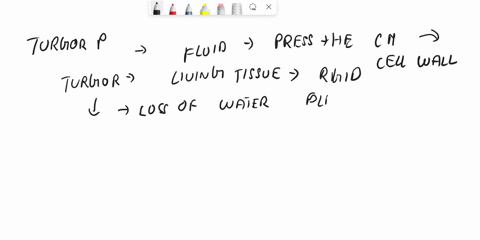 TURGOR P → FLUID → PRESS THE CM →
TURGOR → LIVING TISSUE → RIGID CELL WALL
↓ → LOSS OF WATER PLI